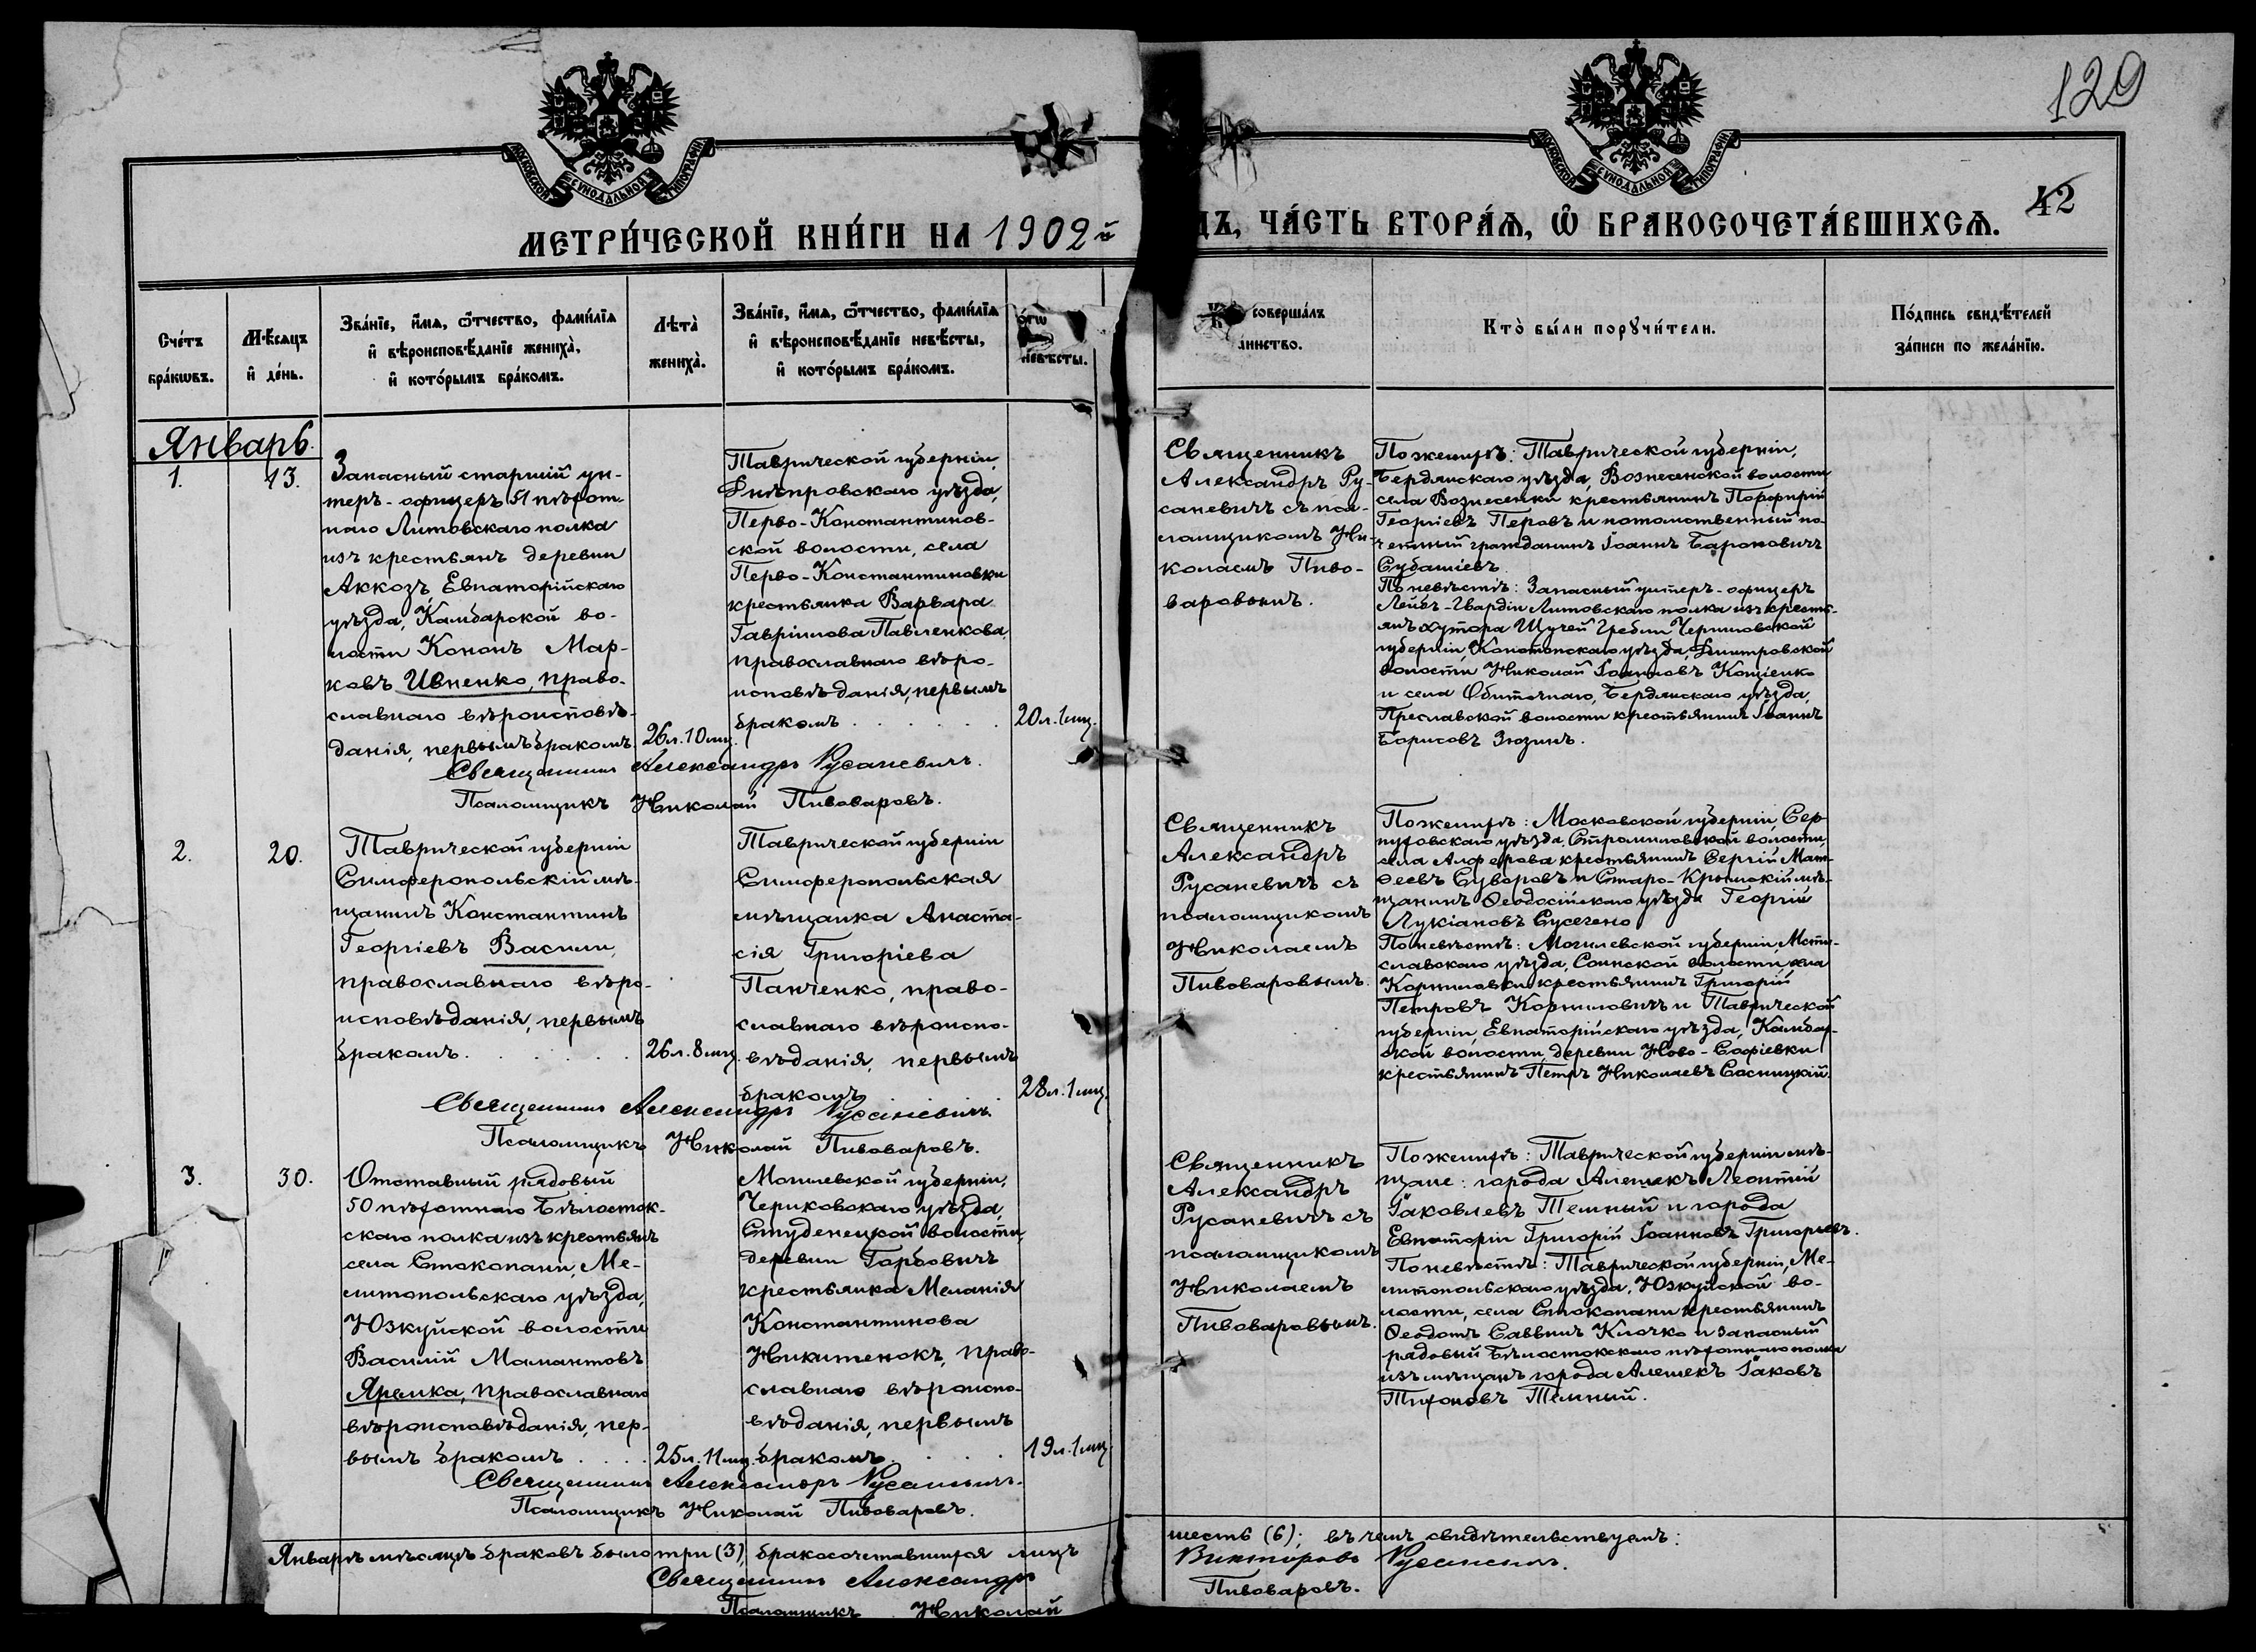 129
МОСКОВСКОЙ СѴНОДАЛЬНОЙ ТИПОГРАФІИ
МОСКОВСКОЙ СѴНОДАЛЬНОЙ ТИПОГРАФІИ
42
МЕТРИ́ЧЕСКОЙ КНИ́ГИ НА 1902й
ДЪ, ЧА́СТЬ ВТОРА́Ѧ, Ѽ БРАКОСОЧЕТА́ВШИХСѦ.
Сче́тъ
бра́кѡвъ.
Мѣ́сѧцъ
и҆ де́нь.
Зва́нїе, и҆́мѧ, ѻ҆́тчество, фами́лїѧ
и҆ вѣроисповѣ́данїе жениха̀,
и҆ кото́рымъ бра́комъ.
Лѣта̀
жениха̀.
Зва́нїе, и҆́мѧ, ѻ҆́тчество, фами́лїѧ
и҆ вѣроисповѣ́данїе невѣ́сты,
и҆ кото́рымъ бра́комъ.
невѣ́сты.
соверша́лъ
инство.
Кто̀ бы́ли порꙋчи́тели.
По́дпись свидѣ́телей
за́писи по жела́нїю.
Январь.
1.
13.
Запасный старшій ун-
теръ-офицеръ 51 пѣхот-
наго Литовскаго полка
изъ крестьянъ деревни
Аккозъ, Евпаторійскаго
уѣзда, Камбарской во-
лости Кононъ Мар-
ковъ Ивненко, право-
славнаго вѣроисповѣ-
данія, первымъ бракомъ.
26 л. 10 мц.
Таврической губерніи,
Днѣпровскаго уѣзда,
Перво-Константинов-
ской волости, села
Перво-Константиновки
крестьянка Варвара
Гавріилова Павленкова,
православнаго вѣро-
исповѣданія, первымъ
бракомъ . . . . . .
20 л. 1 мц.
Священникъ Александръ Русаневичъ.
Псаломщикъ Николай Пивоваровъ.
Священникъ
Александръ Ру-
саневичъ съ пса-
ломщикомъ Ни-
колаемъ Пиво-
варовымъ.
По женихѣ: Таврической губерніи,
Бердянскаго уѣзда, Вознесенской волости
села Вознесенки крестьянинъ Порфирій
Георгіевъ Перовъ и потомственный по-
четный гражданинъ Іоаннъ Бароновичъ
Субашіевъ.
По невѣстѣ: Запасный унтеръ-офицеръ
Лейбъ-Гвардіи Литовскаго полка изъ кресть-
янъ хутора Шучей Гребли Черниговской
губерніи, Конотопскаго уѣзда, Дмитровской
волости Николай Іоанновъ Коціенко
и села Обиточнаго, Бердянскаго уѣзда,
Преславской волости крестьянинъ Іоаннъ
Борисовъ Зюзинъ.
2.
20.
Таврической губерніи
Симферопольскій мѣ-
щанинъ Константинъ
Георгіевъ Васили,
православнаго вѣро-
исповѣданія, первымъ
бракомъ . . . . . .
26 л. 8 мц.
Таврической губерніи
Симферопольская
мѣщанка Анаста-
сія Григоріева
Панченко, право-
славнаго вѣроиспо-
вѣданія, первымъ
бракомъ
28 л. 1 мц.
Священникъ Александръ Русаневичъ.
Псаломщикъ Николай Пивоваровъ.
Священникъ
Александръ
Русаневичъ съ
псаломщикомъ
Николаемъ
Пивоваровымъ.
По женихѣ: Московской губерніи, Сер-
пуховскаго уѣзда, Стромиловской волости,
села Алферова крестьянинъ Сергій Мат-
ѳеевъ Суворовъ и Старо-Крымскій мѣ-
щанинъ Ѳеодосійскаго уѣзда Георгій
Лукіановъ
По невѣстѣ: Могилевской губерніи, Мсти-
славскаго уѣзда, Соинской волости, села
Корниловки крестьянинъ Григорій
Петровъ Корниловичъ и Таврической
губерніи, Евпаторійскаго уѣзда, Камбар-
ской волости, деревни Ново-Софіевки
крестьянинъ Петръ Николаевъ Сосницкій.
3.
30.
Отставный рядовый
50 пѣхотнаго Бѣлосток-
скаго полка изъ крестьянъ
села Стокопани, Ме-
литопольскаго уѣзда,
Юзкуйской волости
Василій Мамантовъ
Яремка, православнаго
вѣроисповѣданія, пер-
вымъ бракомъ . . . .
25 л. 11 мц.
Могилевской губерніи,
Чериковскаго уѣзда,
Студенецкой волости,
деревни Горбовичъ
крестьянка Меланія
Константинова
Никитенокъ, право-
славнаго вѣроиспо-
вѣданія, первымъ
бракомъ . . . . .
19 л. 1 мц.
Священникъ Александръ Русаневичъ.
Псаломщикъ Николай Пивоваровъ.
Священникъ
Александръ
Русаневичъ съ
псаломщикомъ
Николаемъ
Пивоваровымъ.
По женихѣ: Таврической губерніи мѣ-
щане: города Алешекъ Леонтій
Іаковлевъ Темный и города
Евпаторіи Григорій Іоанновъ Григорьевъ.
По невѣстѣ: Таврической губерніи, Ме-
литопольскаго уѣзда, Юзкуйской во-
лости, села Стокопани крестьянинъ
Ѳеодотъ Саввинъ Клочко и запасный
рядовый Бѣлостокскаго пѣхотнаго полка
изъ мѣщанъ города Алешекъ Іаковъ
Тихоновъ Темный.
Январѣ мѣсяцѣ браковъ было три (3) бракосочетавшихся лицъ
шесть (6); въ чемъ свидѣтельствуемъ:
Священникъ Александръ
Викторовъ Русаневичъ.
Псаломщикъ Николай
Пивоваровъ.